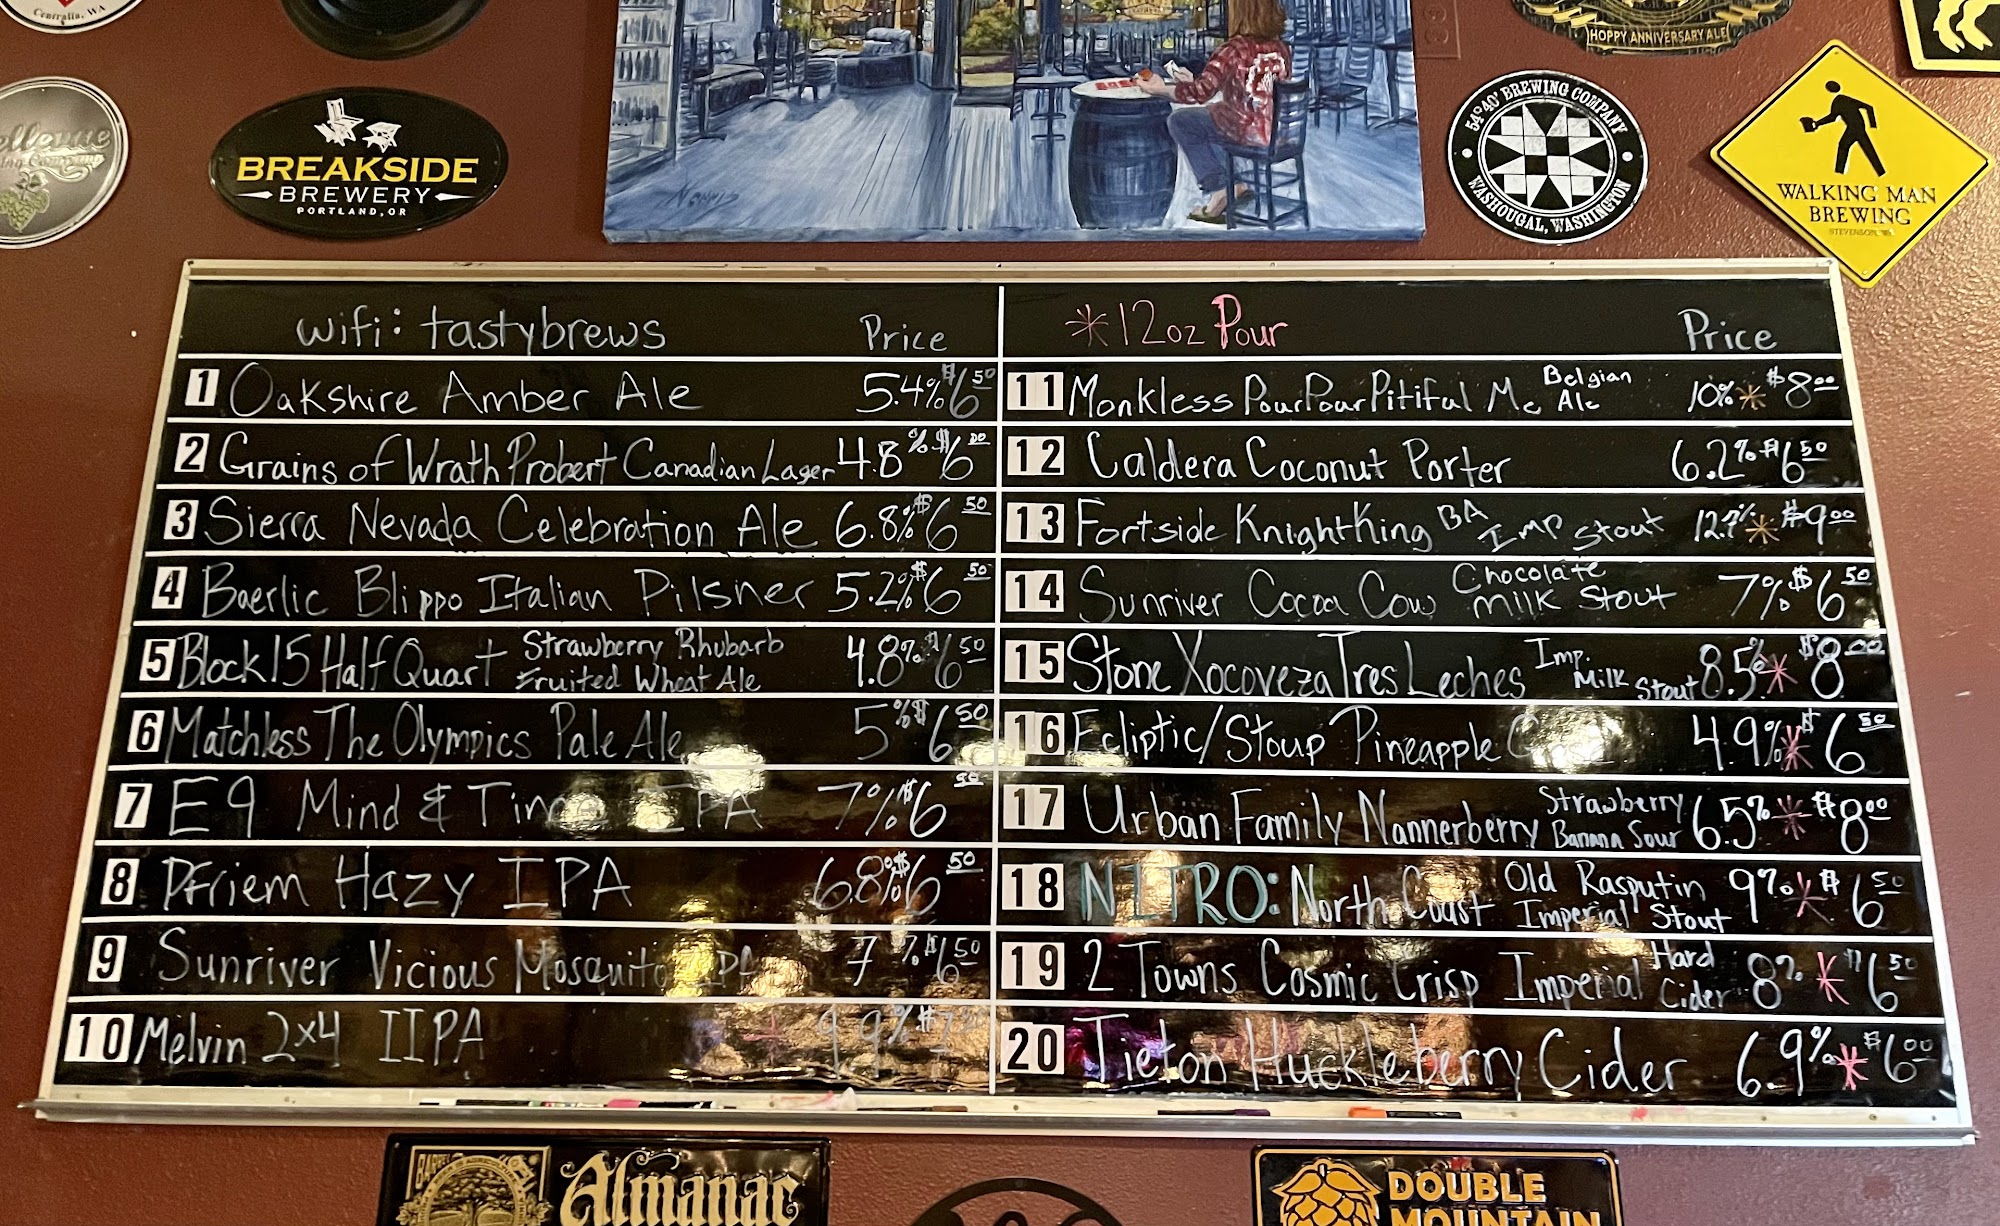 Centralia, WA
BREAKSIDE
BREWERY
PORTLAND, OR
Norris
HOPPY ANNIVERSARY ALE
54°40' BREWING COMPANY
WASHOUGAL, WASHINGTON
WALKING MAN
BREWING
STEVENSON, WA
wifi: tastybrews Price
1 Oakshire Amber Ale 5.4% $6.50
2 Grains of Wrath Probert Canadian Lager 4.8% $6.00
3 Sierra Nevada Celebration Ale 6.8% $6.50
4 Baerlic Blippo Italian Pilsner 5.2% $6.50
5 Block 15 Half Quart Strawberry Rhubarb Fruited Wheat Ale 4.8% $6.50
6 Matchless The Olympics Pale Ale 5% $6.50
7 E9 Mind & IPA 7% $6.50
8 Pfriem Hazy IPA 6.8% $6.50
9 Sunriver Vicious Mosquito IPA 7% $6.50
10 Melvin 2x4 IIPA * 9.9%
*12oz Pour Price
11 Monkless PourPourPitiful Me Belgian Ale 10% * $8.00
12 Caldera Coconut Porter 6.2% $6.50
13 Fortside KnightKing BA Imp Stout * $9.00
14 Sunriver Cocoa Cow Chocolate Milk Stout 7% $6.50
15 Stone Xocoveza Tres Leches Imp. Milk Stout 8.5% * $8.00
16 Ecliptic/Stoup Pineapple 4.9% * $6.50
17 Urban Family Nannerberry Strawberry Banana Sour 6.5% * $8.00
18 NITRO: North Coast Old Rasputin Imperial Stout 9% * $6.50
19 2 Towns Cosmic Crisp Imperial Hard Cider 8% * $6.50
20 Tieton Huckleberry Cider 6.9% * $6.00
Almanac
DOUBLE
MOUNTAIN